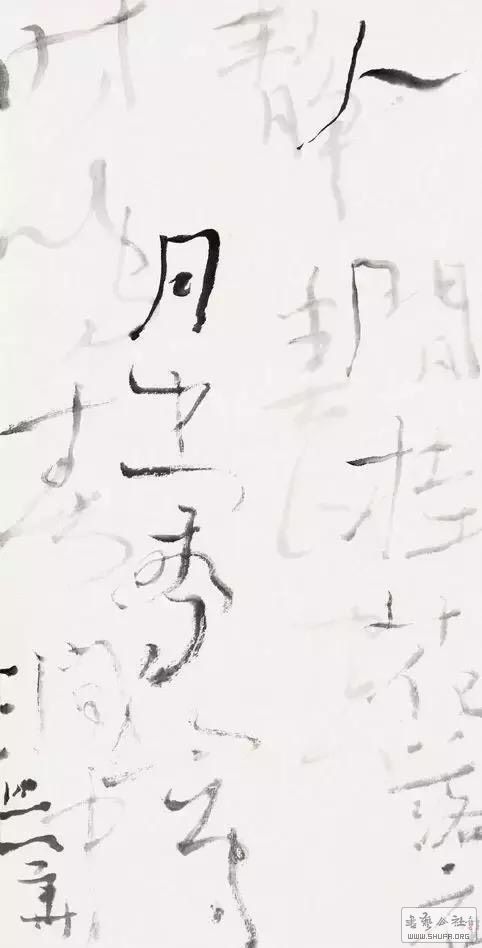 人閒桂花落夜
靜春山空
月出驚山鳥
時鳴春澗中
書藝公社
WWW.SHUFA.ORG